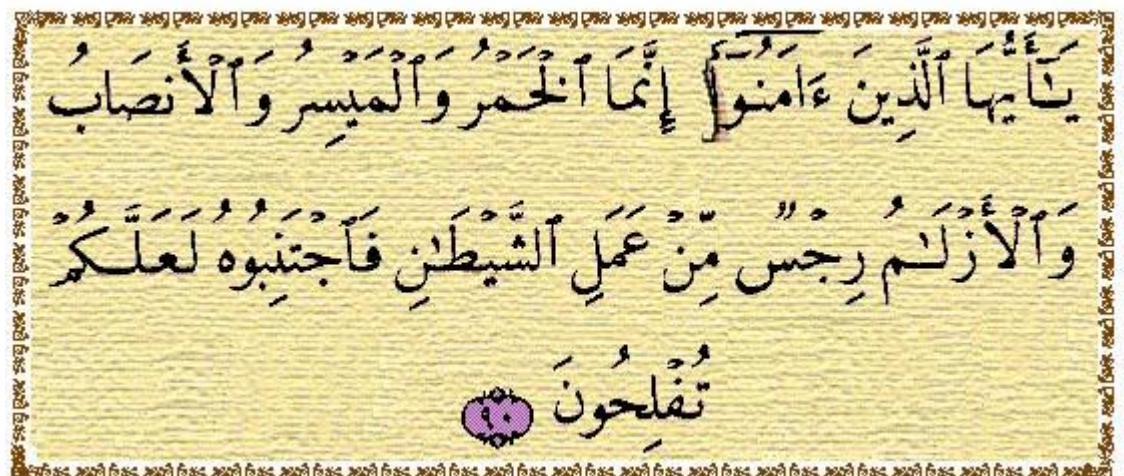 يَـٰٓأَيُّهَا ٱلَّذِينَ ءَامَنُوٓا۟ إِنَّمَا ٱلْخَمْرُ وَٱلْمَيْسِرُ وَٱلْأَنصَابُ
وَٱلْأَزْلَـٰمُ رِجْسٌ مِّنْ عَمَلِ ٱلشَّيْطَـٰنِ فَٱجْتَنِبُوهُ لَعَلَّكُمْ
تُفْلِحُونَ ٩٠